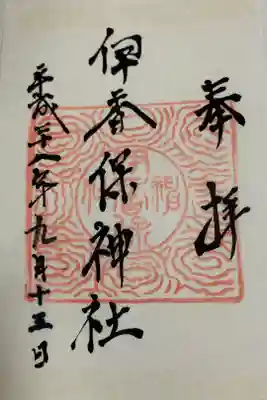 奉拝
伊香保神社
平成二十八年九月十三日